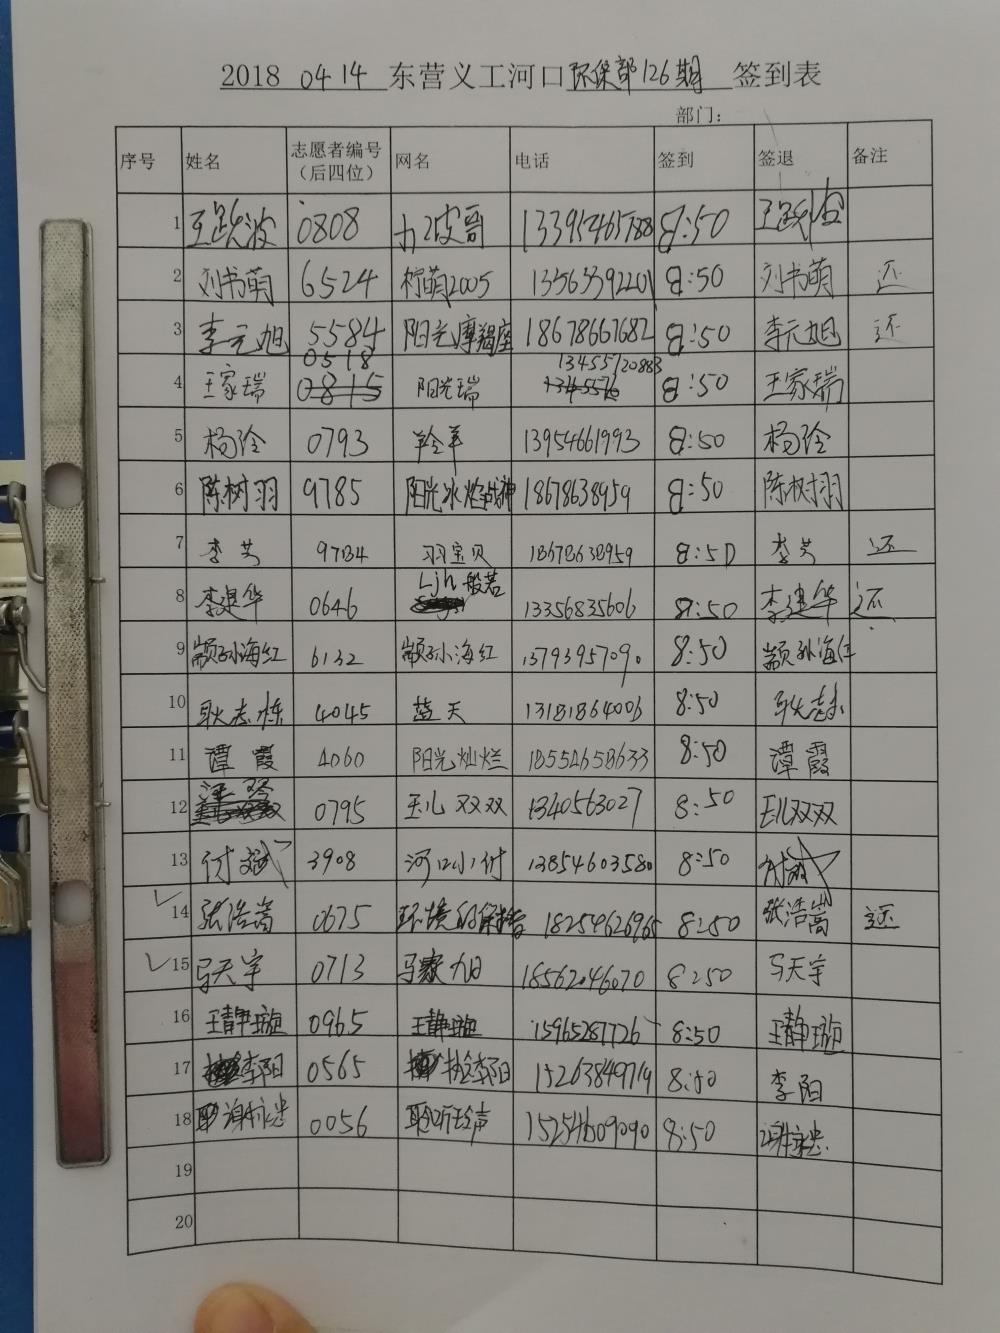 2018 04 14 东营义工河口环保部126期 签到表
部门：
序号 姓名 志愿者编号（后四位） 网名 电话 签到 签退 备注
1 王跃波 0808 13395465788 8:50 王跃波
2 刘书萌 6524 柠萌2005 13563392201 8:50 刘书萌 还
3 李元旭 5584 阳光摩羯座 18678667682 8:50 李元旭 还
4 王家瑞 0518 阳光瑞 13455720883 8:50 王家瑞
5 杨玲 0793 羚羊 13954661993 8:50 杨玲
6 陈树羽 9785 阳光冰焰战神 18678638959 8:50 陈树羽
7 李芳 9784 羽宝贝 18678638959 8:50 李芳 还
8 李建华 0646 Ljh般若 13356835606 8:50 李建华 还
9 颛孙海红 6132 颛孙海红 13793957090 8:50 颛孙海红
10 耿志栋 4045 蓝天 13181864006 8:50
11 谭霞 4060 阳光灿烂 18554658633 8:50 谭霞
12 0795 玉儿双双 1340563027 8:50 玉儿双双
13 付斌 3908 河口小付 13854603580 8:50 付斌
14 张浩嵩 0675 环境的保护者 18254626965 8:50 张浩嵩 还
15 马天宇 0713 18562046070 8:50 马天宇
16 王静璇 0965 王静璇 15965287726 8:50 王静璇
17 李阳 0565 15263849719 8:50 李阳
18 谢永忠 0056 聆听玲声 15254609090 8:50 谢永忠
19
20